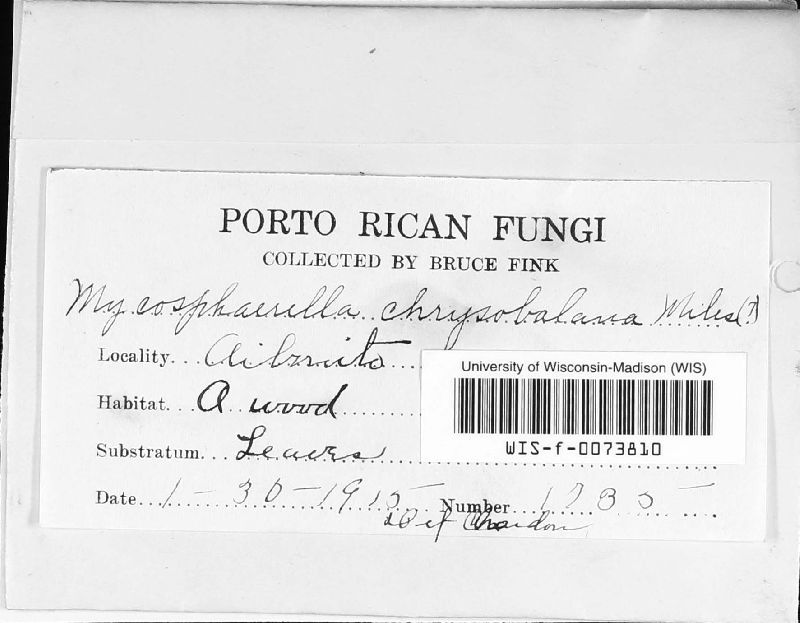 PORTO RICAN FUNGI
COLLECTED BY BRUCE FINK
Mycosphaerella chrysobalana Miles(?)
Locality... Aibonito
University of Wisconsin-Madison (WIS)
Habitat... A wood
WIS-f-0073810
Substratum... Leaves
Date... 1-30-1915 Number...
Det Chardon